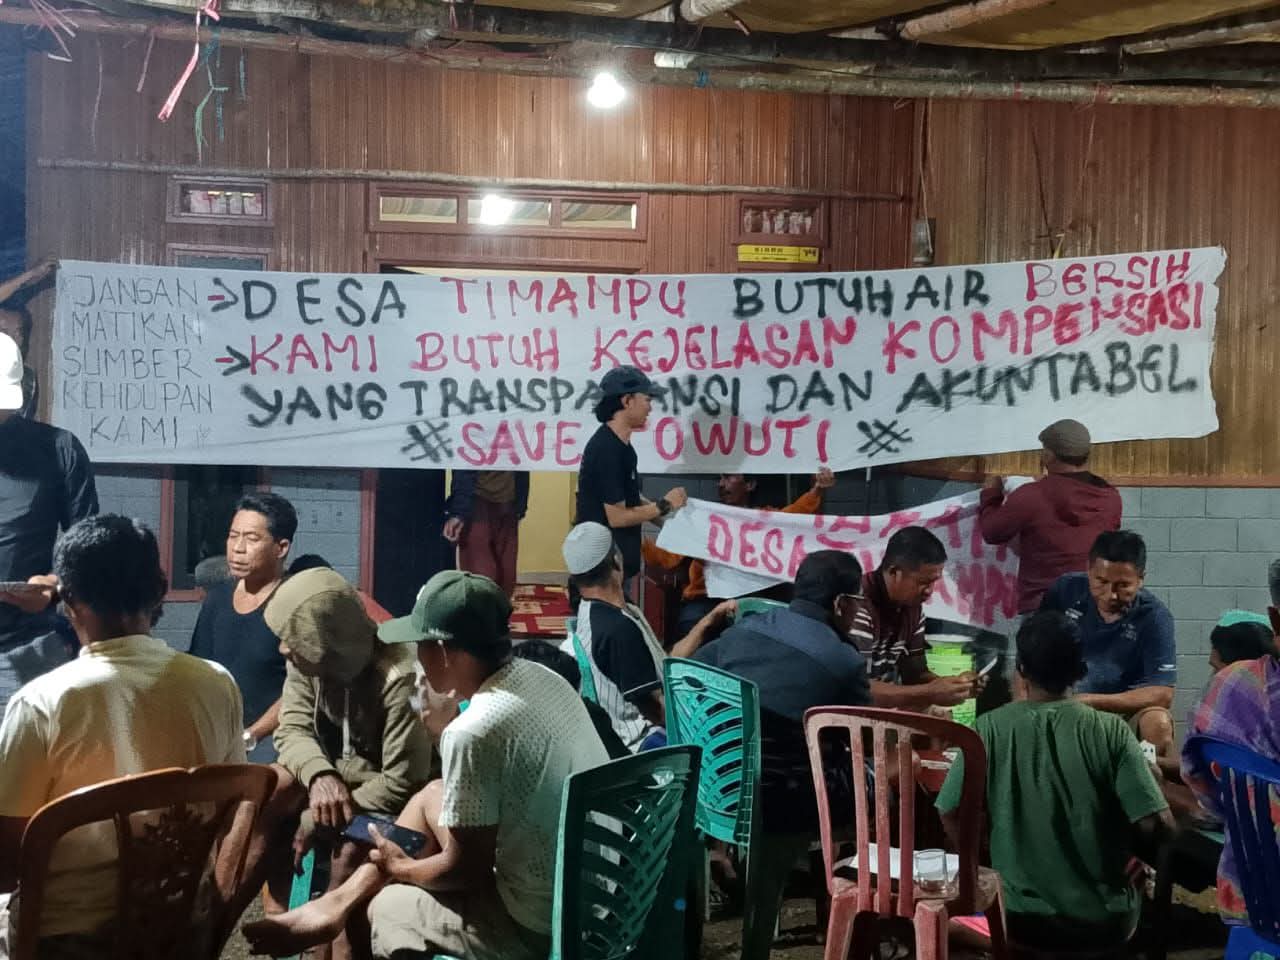 JANGAN
MATIKAN
SUMBER
KEHIDUPAN
KAMI
→DESA TIMAMPU BUTUH AIR BERSIH
→KAMI BUTUH KEJELASAN KOMPENSASI
YANG TRANSPA ANSI DAN AKUNTABEL
#SAVE OWUTI #
DESA